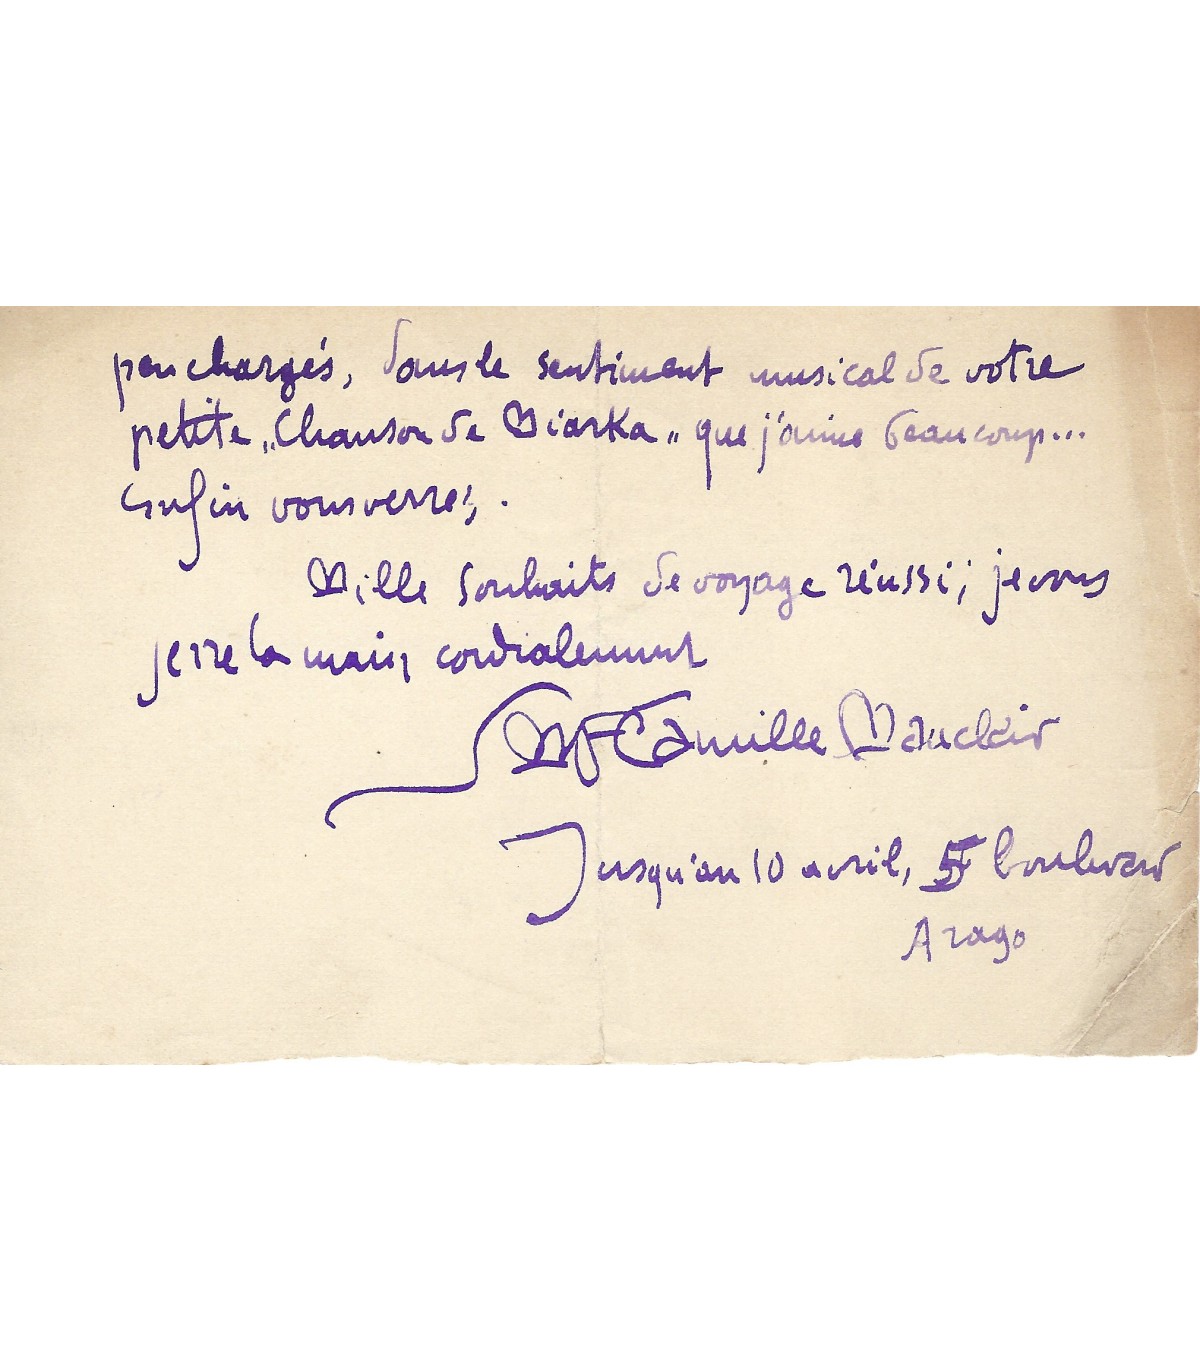 peu chargés, dans le sentiment musical de votre
petite „Chanson de Miarka„ que j'aime beaucoup...
Enfin vous verrez.
Mille souhaits de voyage réussi; je vous
serre la main cordialement
Camille Mauclair
Jusqu'au 10 avril, boulevard
Arago